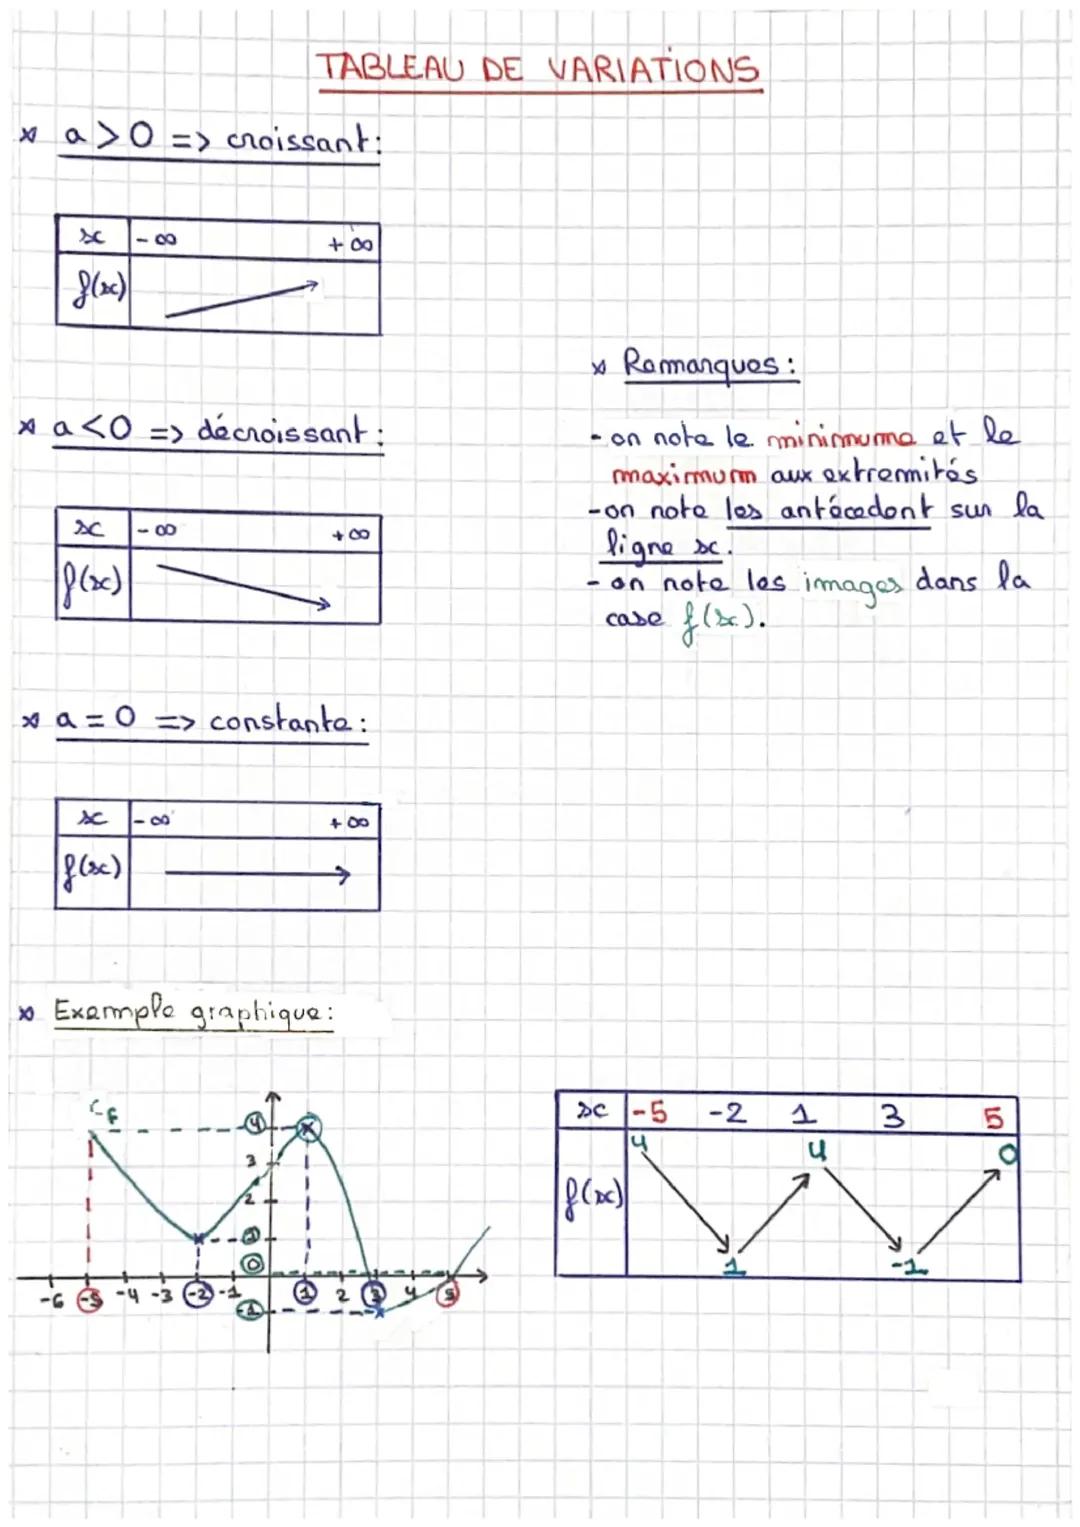 TABLEAU DE VARIATIONS
a > 0 => croissant:
x -∞ +∞
f(x)
a < 0 => décroissant:
x -∞ +∞
f(x)
a = 0 => constante:
x -∞ +∞
f(x)
Remarques:
- on note le minimume et le
maximum aux extremités
- on note les antécédent sur la
ligne x.
- on note les images dans la
case f(x).
Exemple graphique:
Cf
4
3
2
1
0
-6 -5 -4 -3 -2 -1 1 2 3 4 5
-1
x -5 -2 1 3 5
4 4 0
f(x)
1 -1